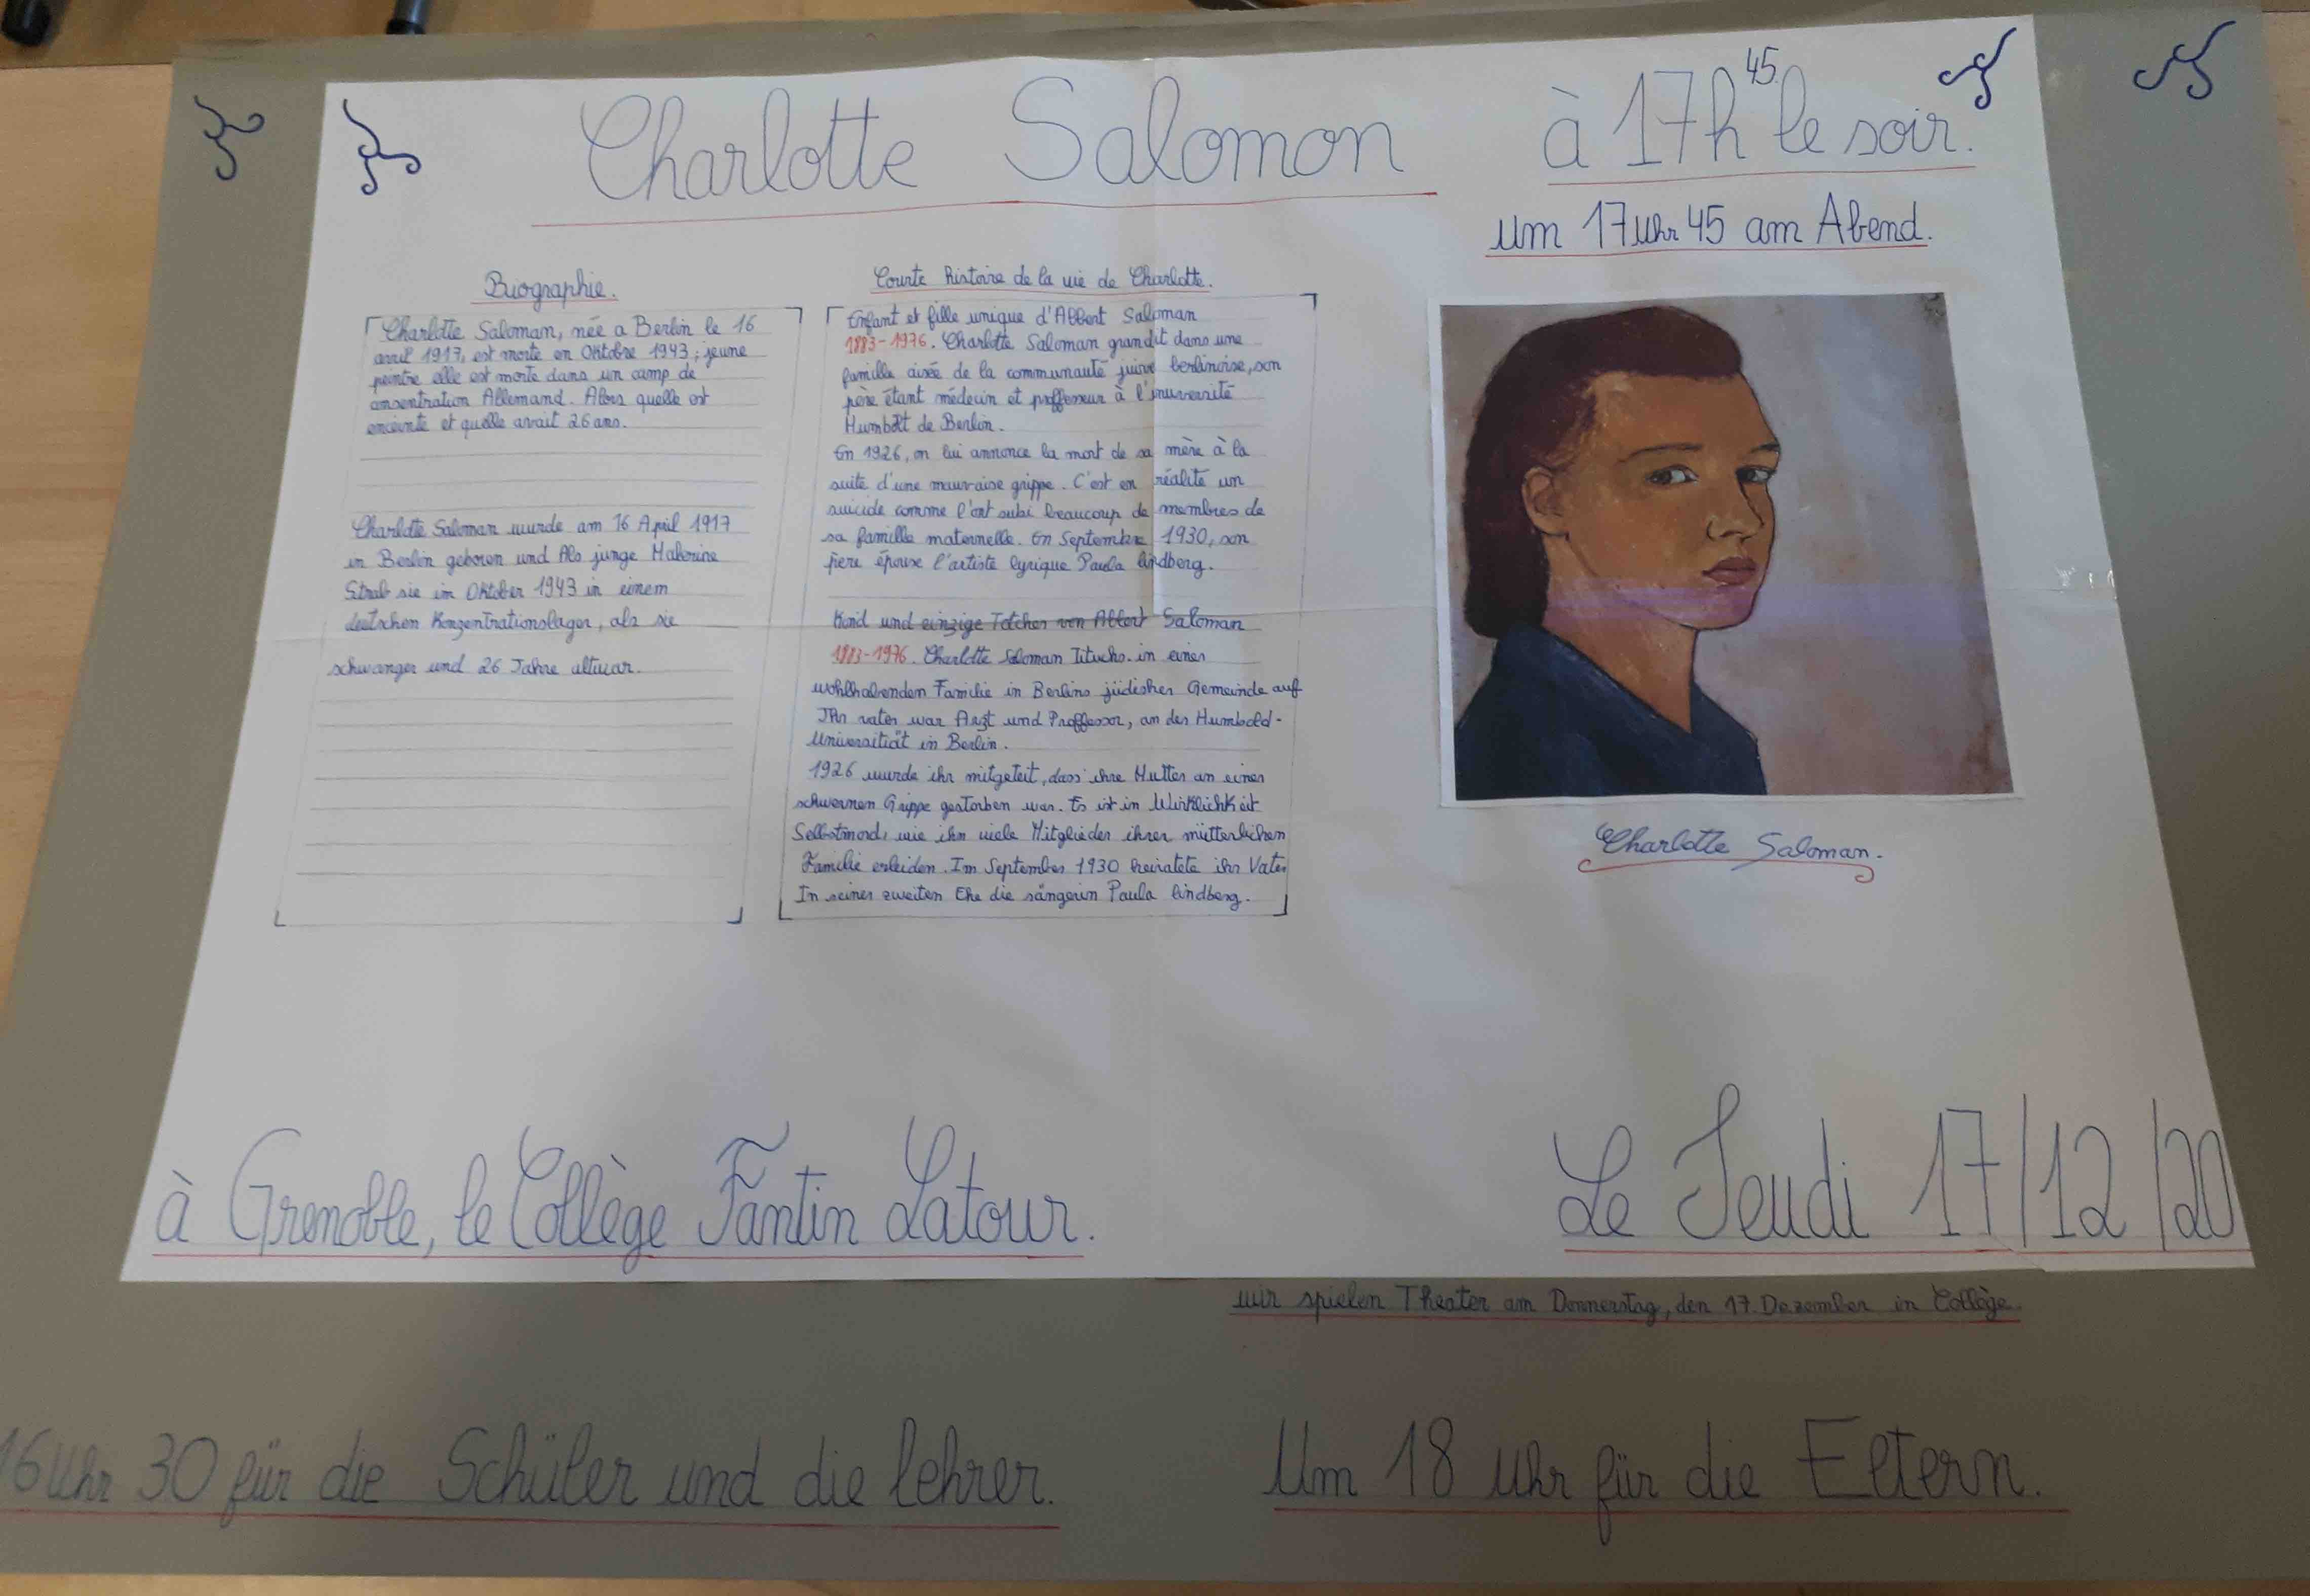 Charlotte Salomon
à 17h 45 le soir.
um 17 Uhr 45 am Abend.
Biographie.
Charlotte Saloman, née a Berlin le 16
avril 1917, est morte en Oktobre 1943 ; jeune
peintre elle est morte dans un camp de
consentration Allemand. Alors quelle est
enceinte et quelle avait 26 ans.
Charlotte Saloman wurde am 16 April 1917
in Berlin geboren und Als junge Malerine
Strab sie im Oktober 1943 in einem
deutschen Konzentrationslager, als sie
schwanger und 26 Jahre altwar.
Courte histoire de la vie de Charlotte.
Enfant et fille unique d'Albert Saloman
1883-1976. Charlotte Saloman grandit dans une
famille aisée de la communauté juive berlinoise, son
père étant médecin et proffesseur à l'université
Humboldt de Berlin.
En 1926, on lui annonce la mort de sa mère à la
suite d'une mauvaise grippe. C'est en réalité un
suicide comme l'ont subi beaucoup de membres de
sa famille maternelle. En Septembre 1930, son
père épouse l'artiste lyrique Paula lindberg.
Kind und einzige Totcher von Albert Saloman
1883-1976. Charlotte Saloman in einer
wohlhabenden Familie in Berlins jüdisher Gemeinde auf
IHr vater war Arzt und Proffessor, an der Humbold-
Universitiät in Berlin.
1926 wurde ihr mitgeteit, dass ihre Mutter an einer
schweren Grippe gestorben war. Es ist in Wirklichkeit
Selbstmord, wie ihn viele Mitglieder ihrer mütterlichen
Familie erleiden. Im September 1930 heiratete ihr Vater
In seiner zweiten Ehe die sängerin Paula lindberg.
Charlotte Saloman.
à Grenoble, le Collège Fantin Latour.
Le Jeudi 17/12/20
wir spielen Theater am Donnerstag, den 17. Dezember in Collège.
16 Uhr 30 für die Schüler und die lehrer.
Um 18 Uhr für die Eltern.